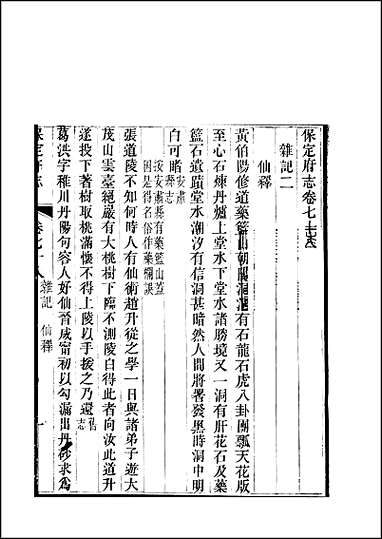 保定府志卷七十八
雜記二
仙釋
黃伯陽修道藥籃山朝陽洞洞有石龍石虎八卦團瓢天花版
至心石煉丹爐上堂水下堂水諸勝境又一洞有肝花石及藥
籃石遺蹟堂水潮汐有信洞甚暗然人間將署發畢時洞中明
白可睹安肅縣志
按安肅縣有藥籃山蓋
因是得名俗作藥欄誤
張道陵不知何時人有仙術趙升從之學一日與諸弟子遊大
茂山雲臺絕巖有大桃樹下臨不測陵曰得此者向汝此道升
遂投下著樹取桃滿懷不得上陵以手援之乃還舊志
葛洪字稚川丹陽句容人好仙晉咸甯初以勾漏出丹砂求為
保定府志 卷七十八 雜記 仙釋 一